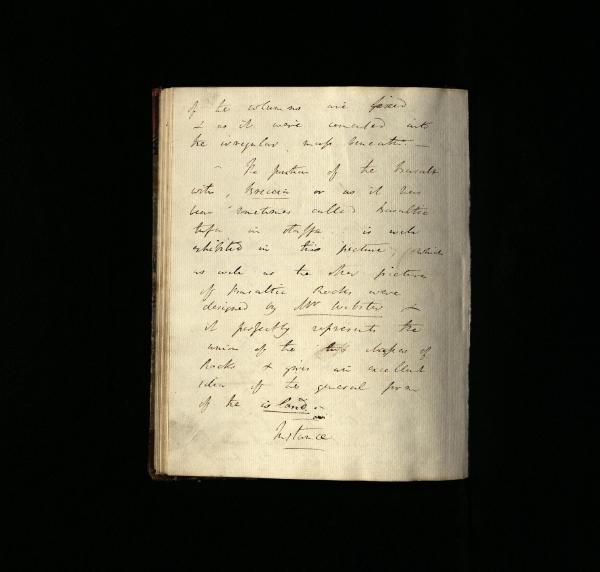 of the columns are fixed
& as it were cemented into
the irregular mass beneath. —
— The position of the basalt
with, Breccia or as it has
been sometimes called basaltic
tufa in Staffa is well
exhibited in this picture, which
as well as the other picture
of basaltic Rocks were
designed by Mr Webster —
it perfectly represents the
union of the two classes of
Rocks & gives an excellent
idea of the general form
of the island —
Instance